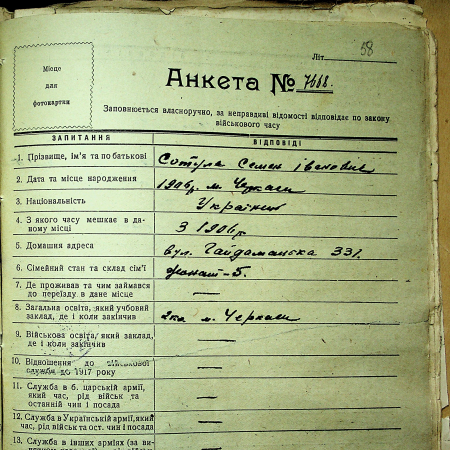 58
Літ
Місце
для
фотокартки
Анкета № 7688.
Заповнюється власноручно, за неправдиві відомості відповідає по закону
військового часу
ЗАПИТАННЯ ВІДПОВІДІ
1. Прізвище, ім'я та по батькові Сотула Семен Іванович
2. Дата та місце народження 1906р. м. Черкаси
3. Національність Українец
4. З якого часу мешкає в да-
ному місці З 1906р.
5. Домашня адреса вул. Гайдамацька 331.
6. Сімейний стан та склад сім'ї женат-5.
7. Де проживав та чим займався
до переїзду в дане місце —
8. Загальна освіта, який учбовий
заклад, де і коли закінчив 2кл м. Черкаси
9. Військова освіта, який заклад,
де і коли закінчив —
10. Відношення до військової
служби до 1917 року —
11. Служба в б. царській армії,
який час, рід військ та
останній чин і посада —
12. Служба в Українській армії, який
час, рід військ та ост. чин і посада —
13. Служба в інших арміях (за ви-